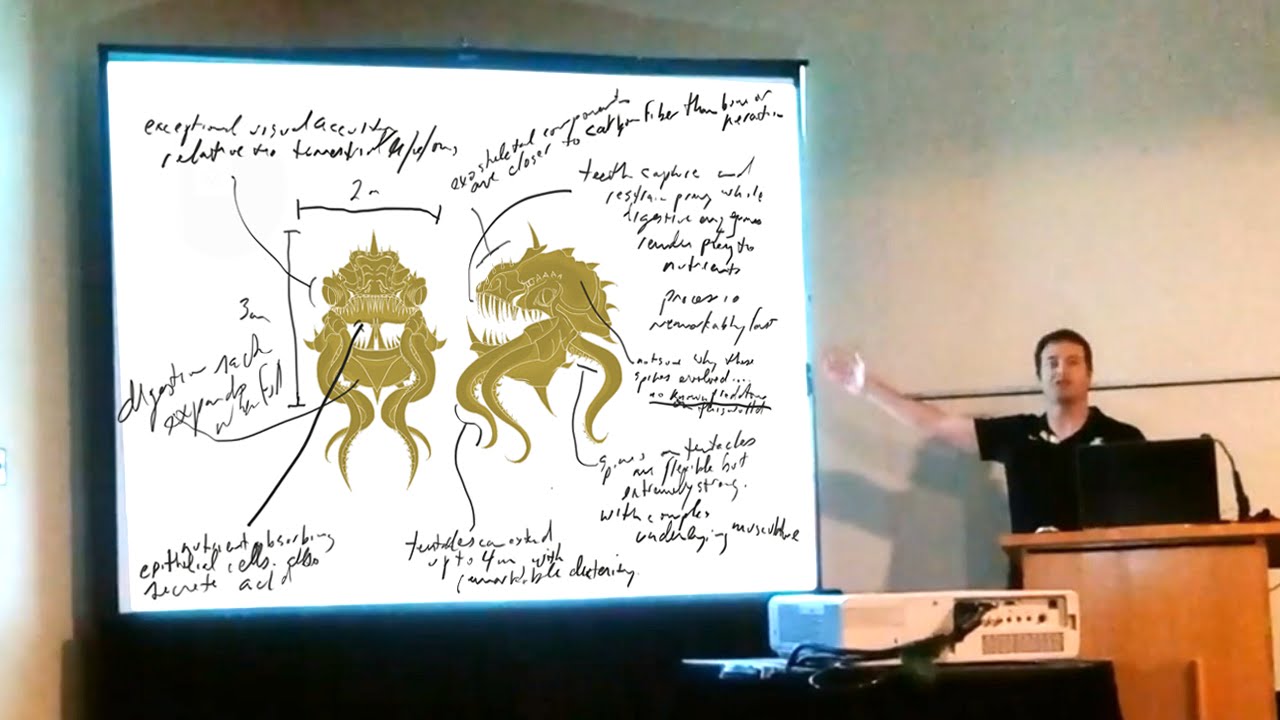 exceptional visual acuity
relative to terrestrial
exoskeletal components
are closer to carbon fiber than bone or
2m
3m
teeth capture and
restrain prey while
digestive enzymes
render prey to
nutrients
process is
remarkably fast
digestion sack
expands
when full
not sure why these
spikes evolved...
no known predators
spines on tentacles
are flexible but
extremely strong.
with complex
underlying musculature
nutrient absorbing
epithelial cells. also
secrete acid
tentacles can extend
up to 4m with
remarkable dexterity.